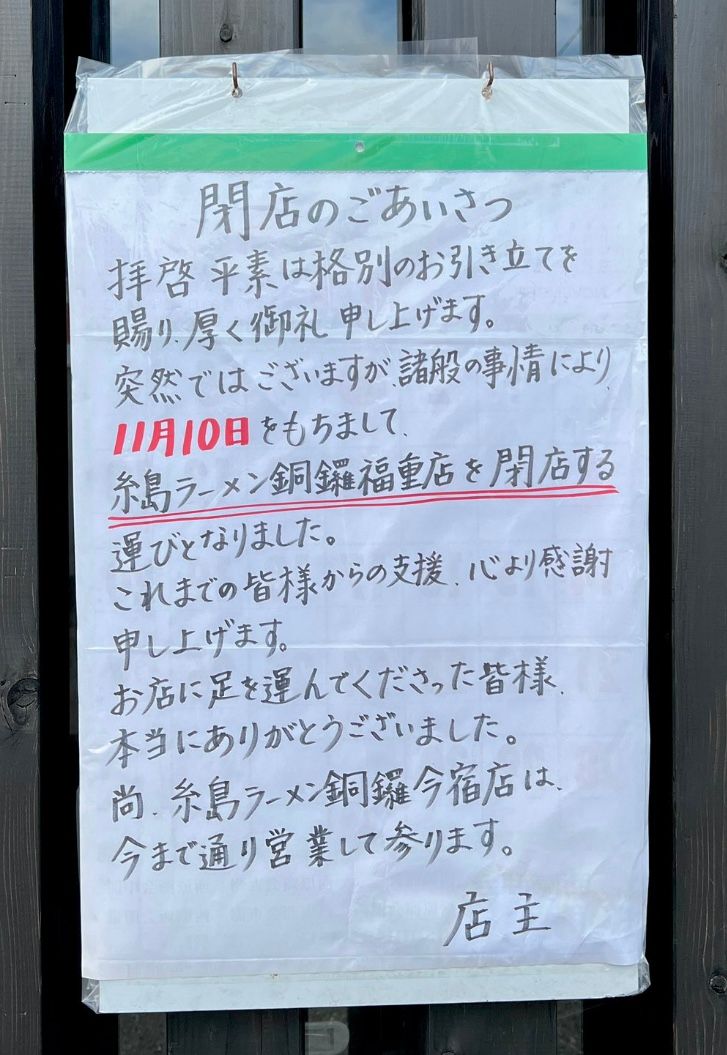 閉店のごあいさつ
拝啓 平素は格別のお引き立てを
賜り、厚く御礼申し上げます。
突然ではございますが、諸般の事情により、
11月10日をもちまして、
糸島ラーメン銅鑼福重店を閉店する
運びとなりました。
これまでの皆様からの支援、心より感謝
申し上げます。
お店に足を運んでくださった皆様、
本当にありがとうございました。
尚、糸島ラーメン銅鑼今宿店は、
今まで通り営業して参ります。
店主